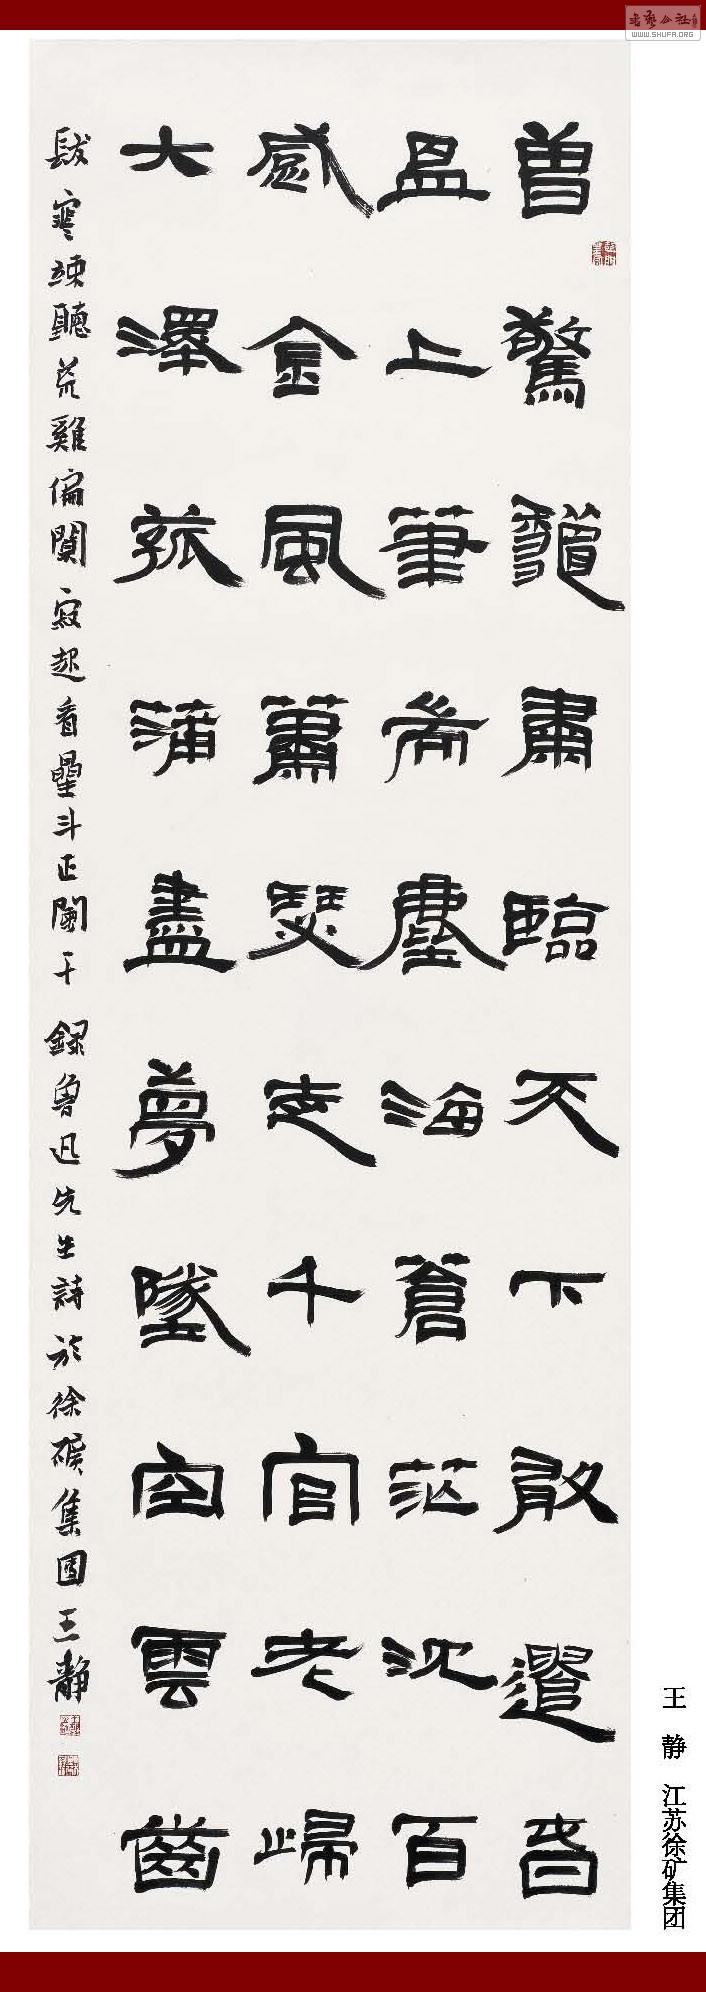 曾驚龝肅臨天下敢遣春
昷上筆耑塵海蒼茫沈百
感金風蕭瑟走千官老歸
大澤孤蒲盡夢墜空雲齒
髮寒竦聽荒雞偏闃寂起看星斗正闌干 錄魯迅先生詩於徐礦集團王靜
王 静 江苏徐矿集团
书艺公社
WWW.SHUFA.ORG